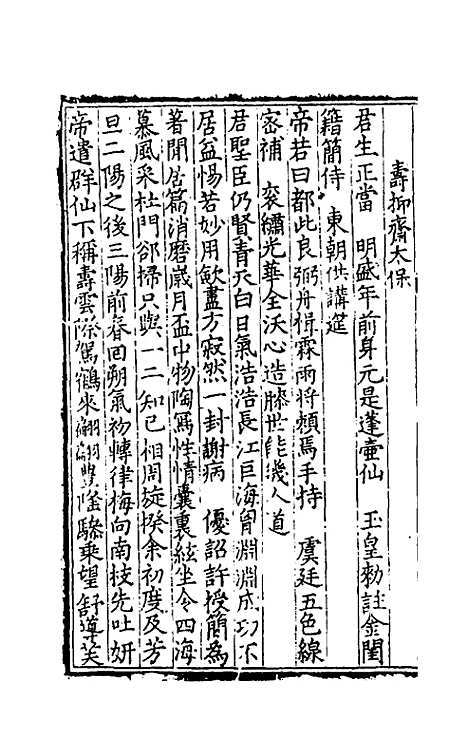 壽抑齋太保
君生正當　明盛年前身元是蓬壺仙　玉皇勑註金閨
籍簡侍　東朝供講筵
帝若曰都此良弼舟楫霖雨將頼焉手持　虞廷五色線
密補　袞繡光華全沃心造膝世能幾人道
君聖臣仍賢青天白日氣浩浩長江巨海胷淵淵成功不
居益惕若妙用歛盡方寂然一封謝病　優詔許授簡為
著閒居篇消磨嵗月盃中物陶寫性情囊裏絃坐令四海
慕風采杜門郤掃只與一二知己相周旋揆余初度及芳
旦二陽之後三陽前春回朔氣初轉律梅向南枝先吐妍
帝遣群仙下稱壽雲際駕鶴來翩翩豊隆驂乗望舒導笑